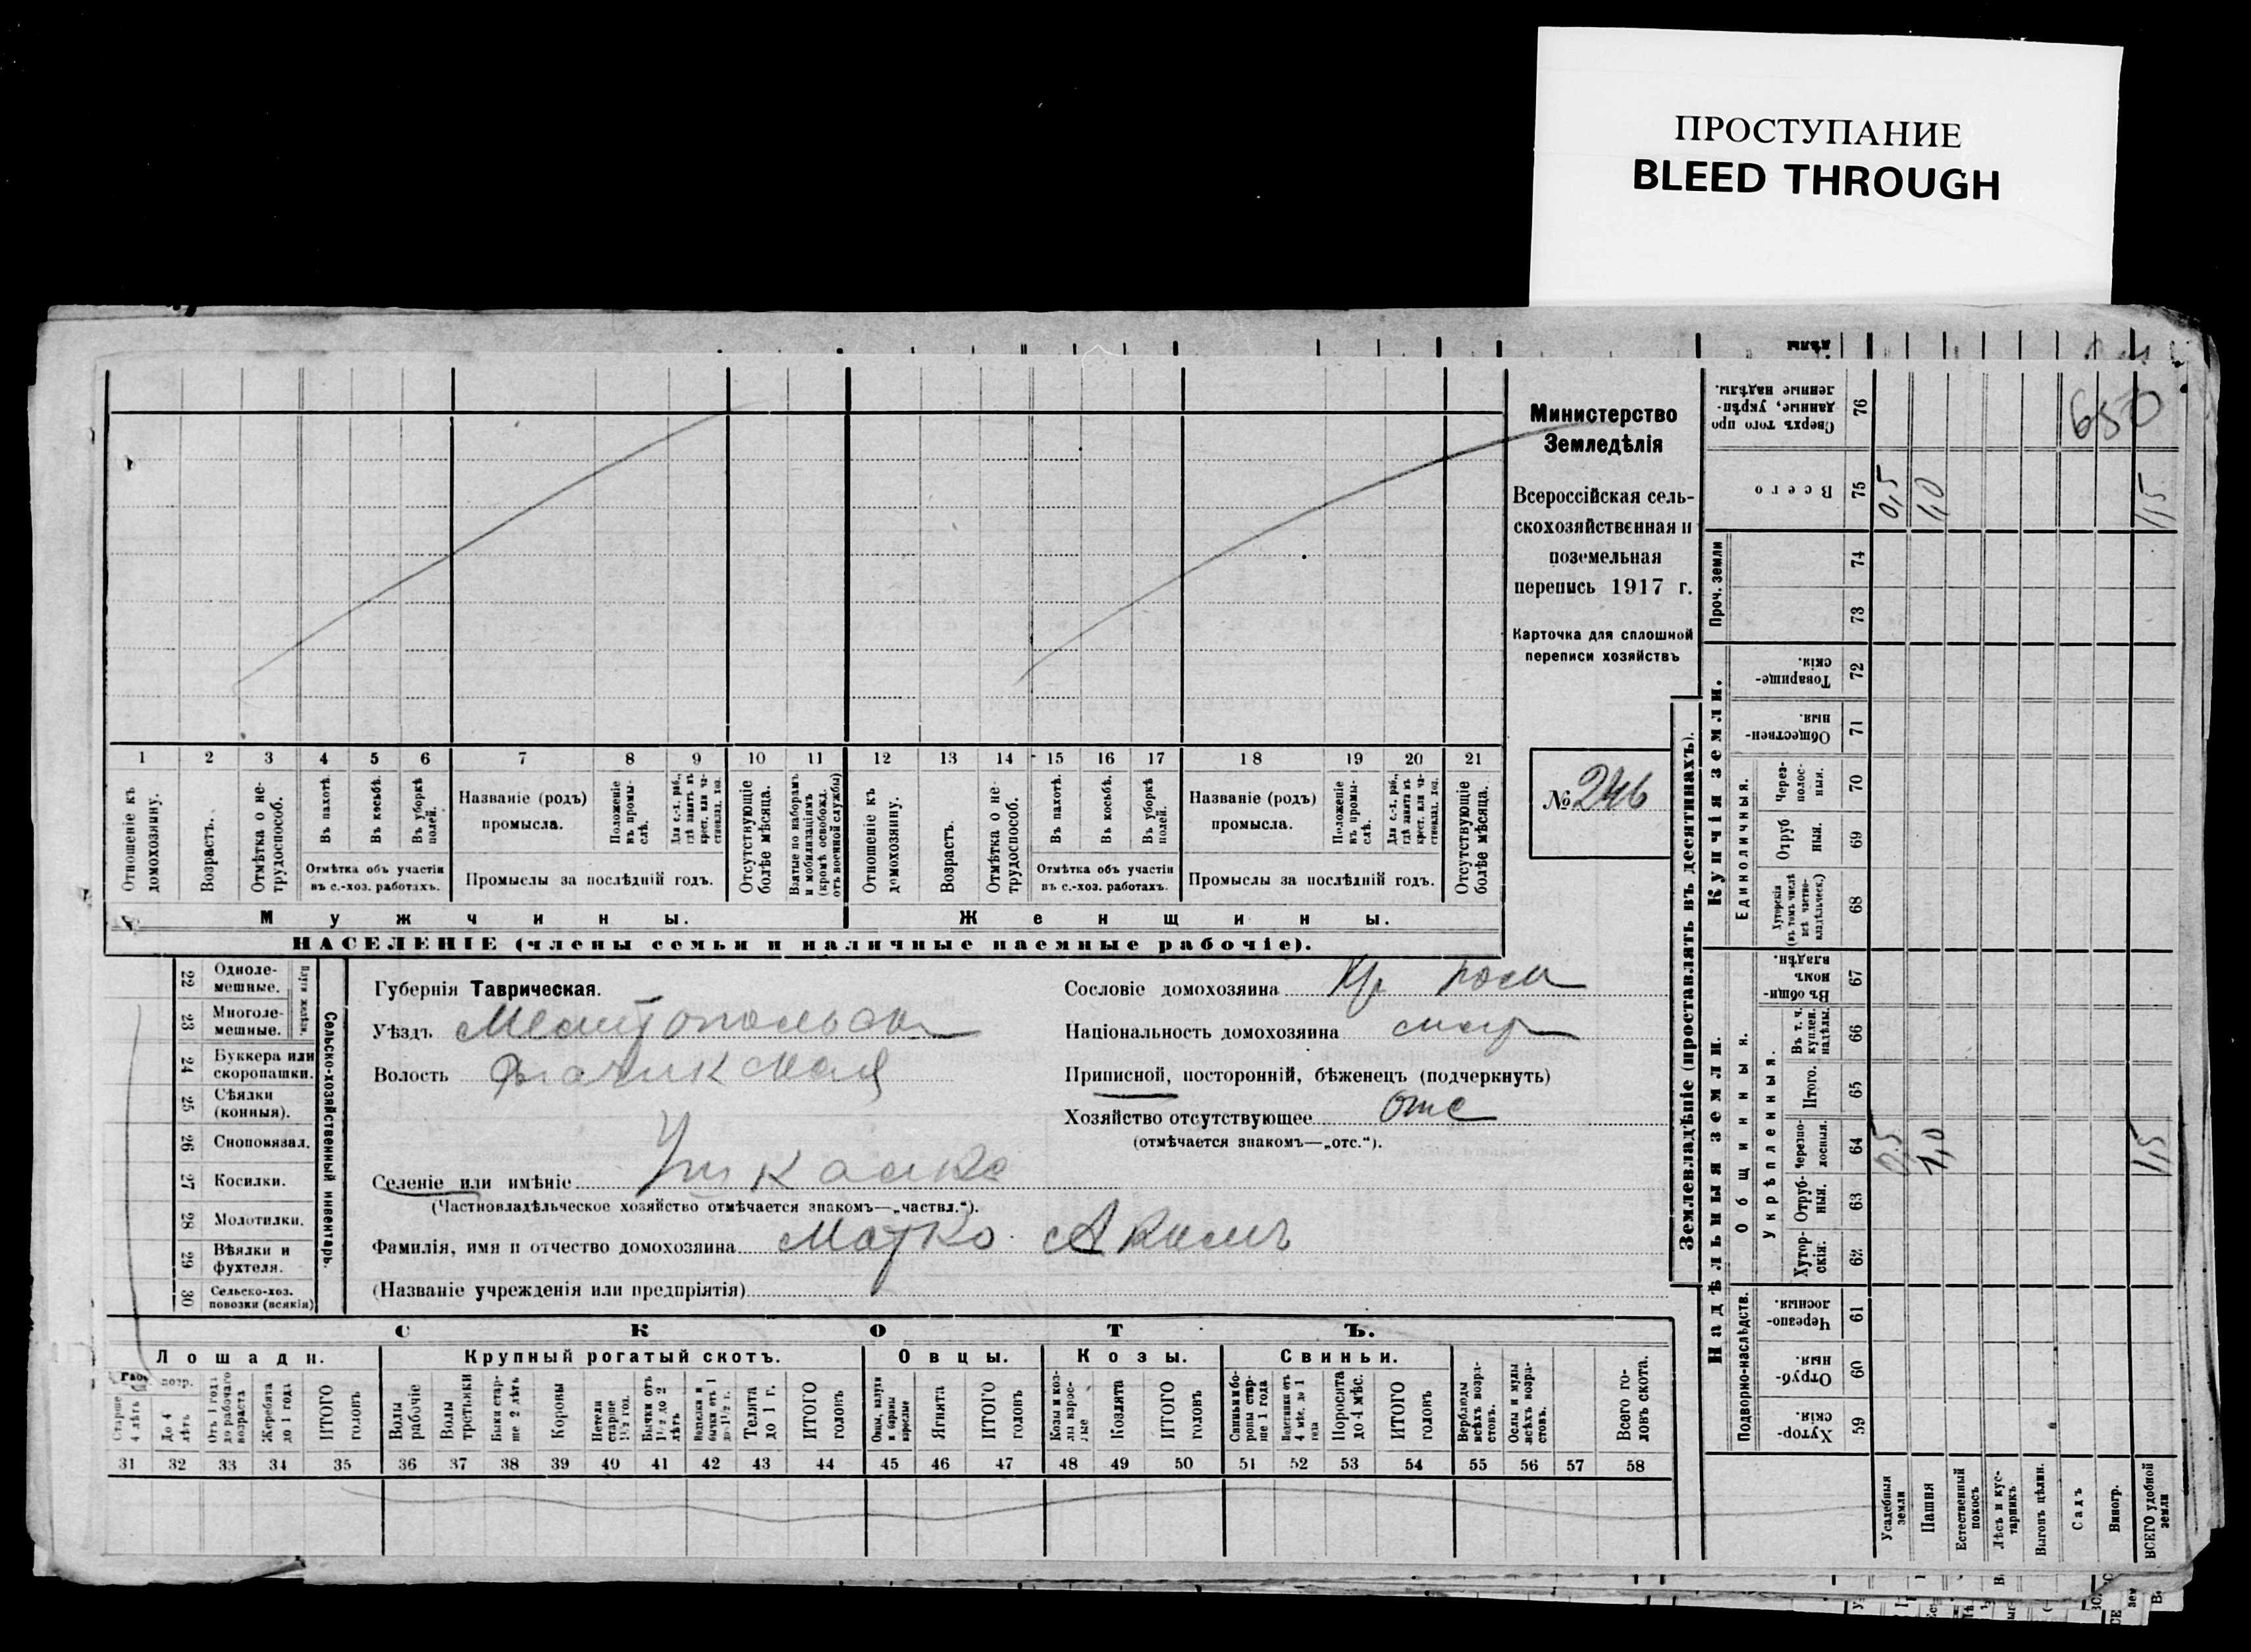 ПРОСТУПАНИЕ
BLEED THROUGH
Министерство
Земледѣлія
Всероссійская сель-
скохозяйственная и
поземельная
перепись 1917 г.
Карточка для сплошной
переписи хозяйствъ
№ 246
1 2 3 4 5 6 7 8 9 10 11 12 13 14 15 16 17 18 19 20 21
Отношеніе къ домохозяину.
Возрастъ.
Отмѣтка о не-трудоспособ.
Въ пахотѣ.
Въ косьбѣ.
Въ уборкѣ полей.
Отмѣтка объ участіи
въ с.-хоз. работахъ.
Названіе (родъ)
промысла.
Положеніе въ промы-слѣ.
Для с.-х. раб., гдѣ занятъ въ крест. или ча-стновлад. хоз.
Промыслы за послѣдній годъ.
Отсутствующіе болѣе мѣсяца.
Взятые по наборамъ и мобилизаціямъ (кромѣ освобожд. отъ военной службы)
Отношеніе къ домохозяину.
Возрастъ.
Отмѣтка о не-трудоспособ.
Въ пахотѣ.
Въ косьбѣ.
Въ уборкѣ полей.
Отмѣтка объ участіи
въ с.-хоз. работахъ.
Названіе (родъ)
промысла.
Положеніе въ промы-слѣ.
Для с.-х. раб., гдѣ занята въ крест. или ча-стновлад. хоз.
Промыслы за послѣдній годъ.
Отсутствующіе болѣе мѣсяца.
Мужчины. Женщины.
НАСЕЛЕНІЕ (члены семьи и наличные наемные рабочіе).
Сельско-хозяйственный инвентарь.
22 Одноле-мешные.
23 Многоле-мешные.
24 Буккера или скоропашки.
25 Сѣялки (конныя).
26 Сноповязал.
27 Косилки.
28 Молотилки.
29 Вѣялки и фухтеля.
30 Сельско-хоз. повозки (всякія)
Губернія Таврическая.
Уѣздъ
Волость
Селеніе или имѣніе
(Частновладѣльческое хозяйство отмѣчается знакомъ—„частвл.“).
Фамилія, имя и отчество домохозяина Матко Акимъ
(Названіе учрежденія или предпріятія)
Сословіе домохозяина Кр
Національность домохозяина
Приписной, посторонній, бѣженецъ (подчеркнуть)
Хозяйство отсутствующее отс
(отмѣчается знакомъ—„отс.“).
СКОТЪ.
Лошади. Крупный рогатый скотъ. Овцы. Козы. Свиньи.
Старше 4 лѣтъ
До 4 лѣтъ
Отъ 1 года до рабочаго возраста
Жеребята до 1 года
ИТОГО головъ
Волы рабочіе
Волы третьяки
Быки стар-ше 2 лѣтъ
Коровы
Нетели старше 1½ год.
Бычки отъ 1½ до 2 лѣтъ
Телята до 1 г.
ИТОГО головъ
Овцы, валухи и бараны взрослые
Ягнята
ИТОГО головъ
Козы и коз-лы взрос-лые
Козлята
ИТОГО головъ
Свиньи и бо-ровы стар-ше 1 года
Подсвинки отъ 4 мѣс. до 1 года
Поросята до 4 мѣс.
ИТОГО головъ
Верблюды всѣхъ возра-стовъ.
Ослы и мулы всѣхъ возра-стовъ.
Всего го-ловъ скота.
31 32 33 34 35 36 37 38 39 40 41 42 43 44 45 46 47 48 49 50 51 52 53 54 55 56 57 58
Землевладѣніе (проставлять въ десятинахъ).
Надѣльныя земли. Купчія земли. Проч. земли
Подворно-наслѣдств.
Общинныя.
Укрѣпленныя.
Единоличныя.
Хутор-скія. 59
Отруб-ныя. 60
Черезпо-лосныя. 61
Хутор-скія. 62
Отруб-ныя. 63
Черезпо-лосныя. 64 0,5 1,0 1,5
Итого. 65
Въ т. ч. куплен. надѣлы. 66
Въ общин-номъ владѣн. 67
Хуторскія (въ томъ числѣ всѣ частно-владѣльческ.) 68
Отруб ныя. 69
Через-полос-ныя. 70
Обществен-ныя. 71
Товарище-скія. 72
73
74
Всего 75 0,5 1,0 1,5
Сверхъ того про данные, укрѣп-ленные надѣлы. 76
650
Усадебныя земли
Пашня
Естественный покосъ
Лѣсъ и кус-тарникъ
Выгонъ цѣлин.
Садъ
Виногр.
ВСЕГО удобной земли